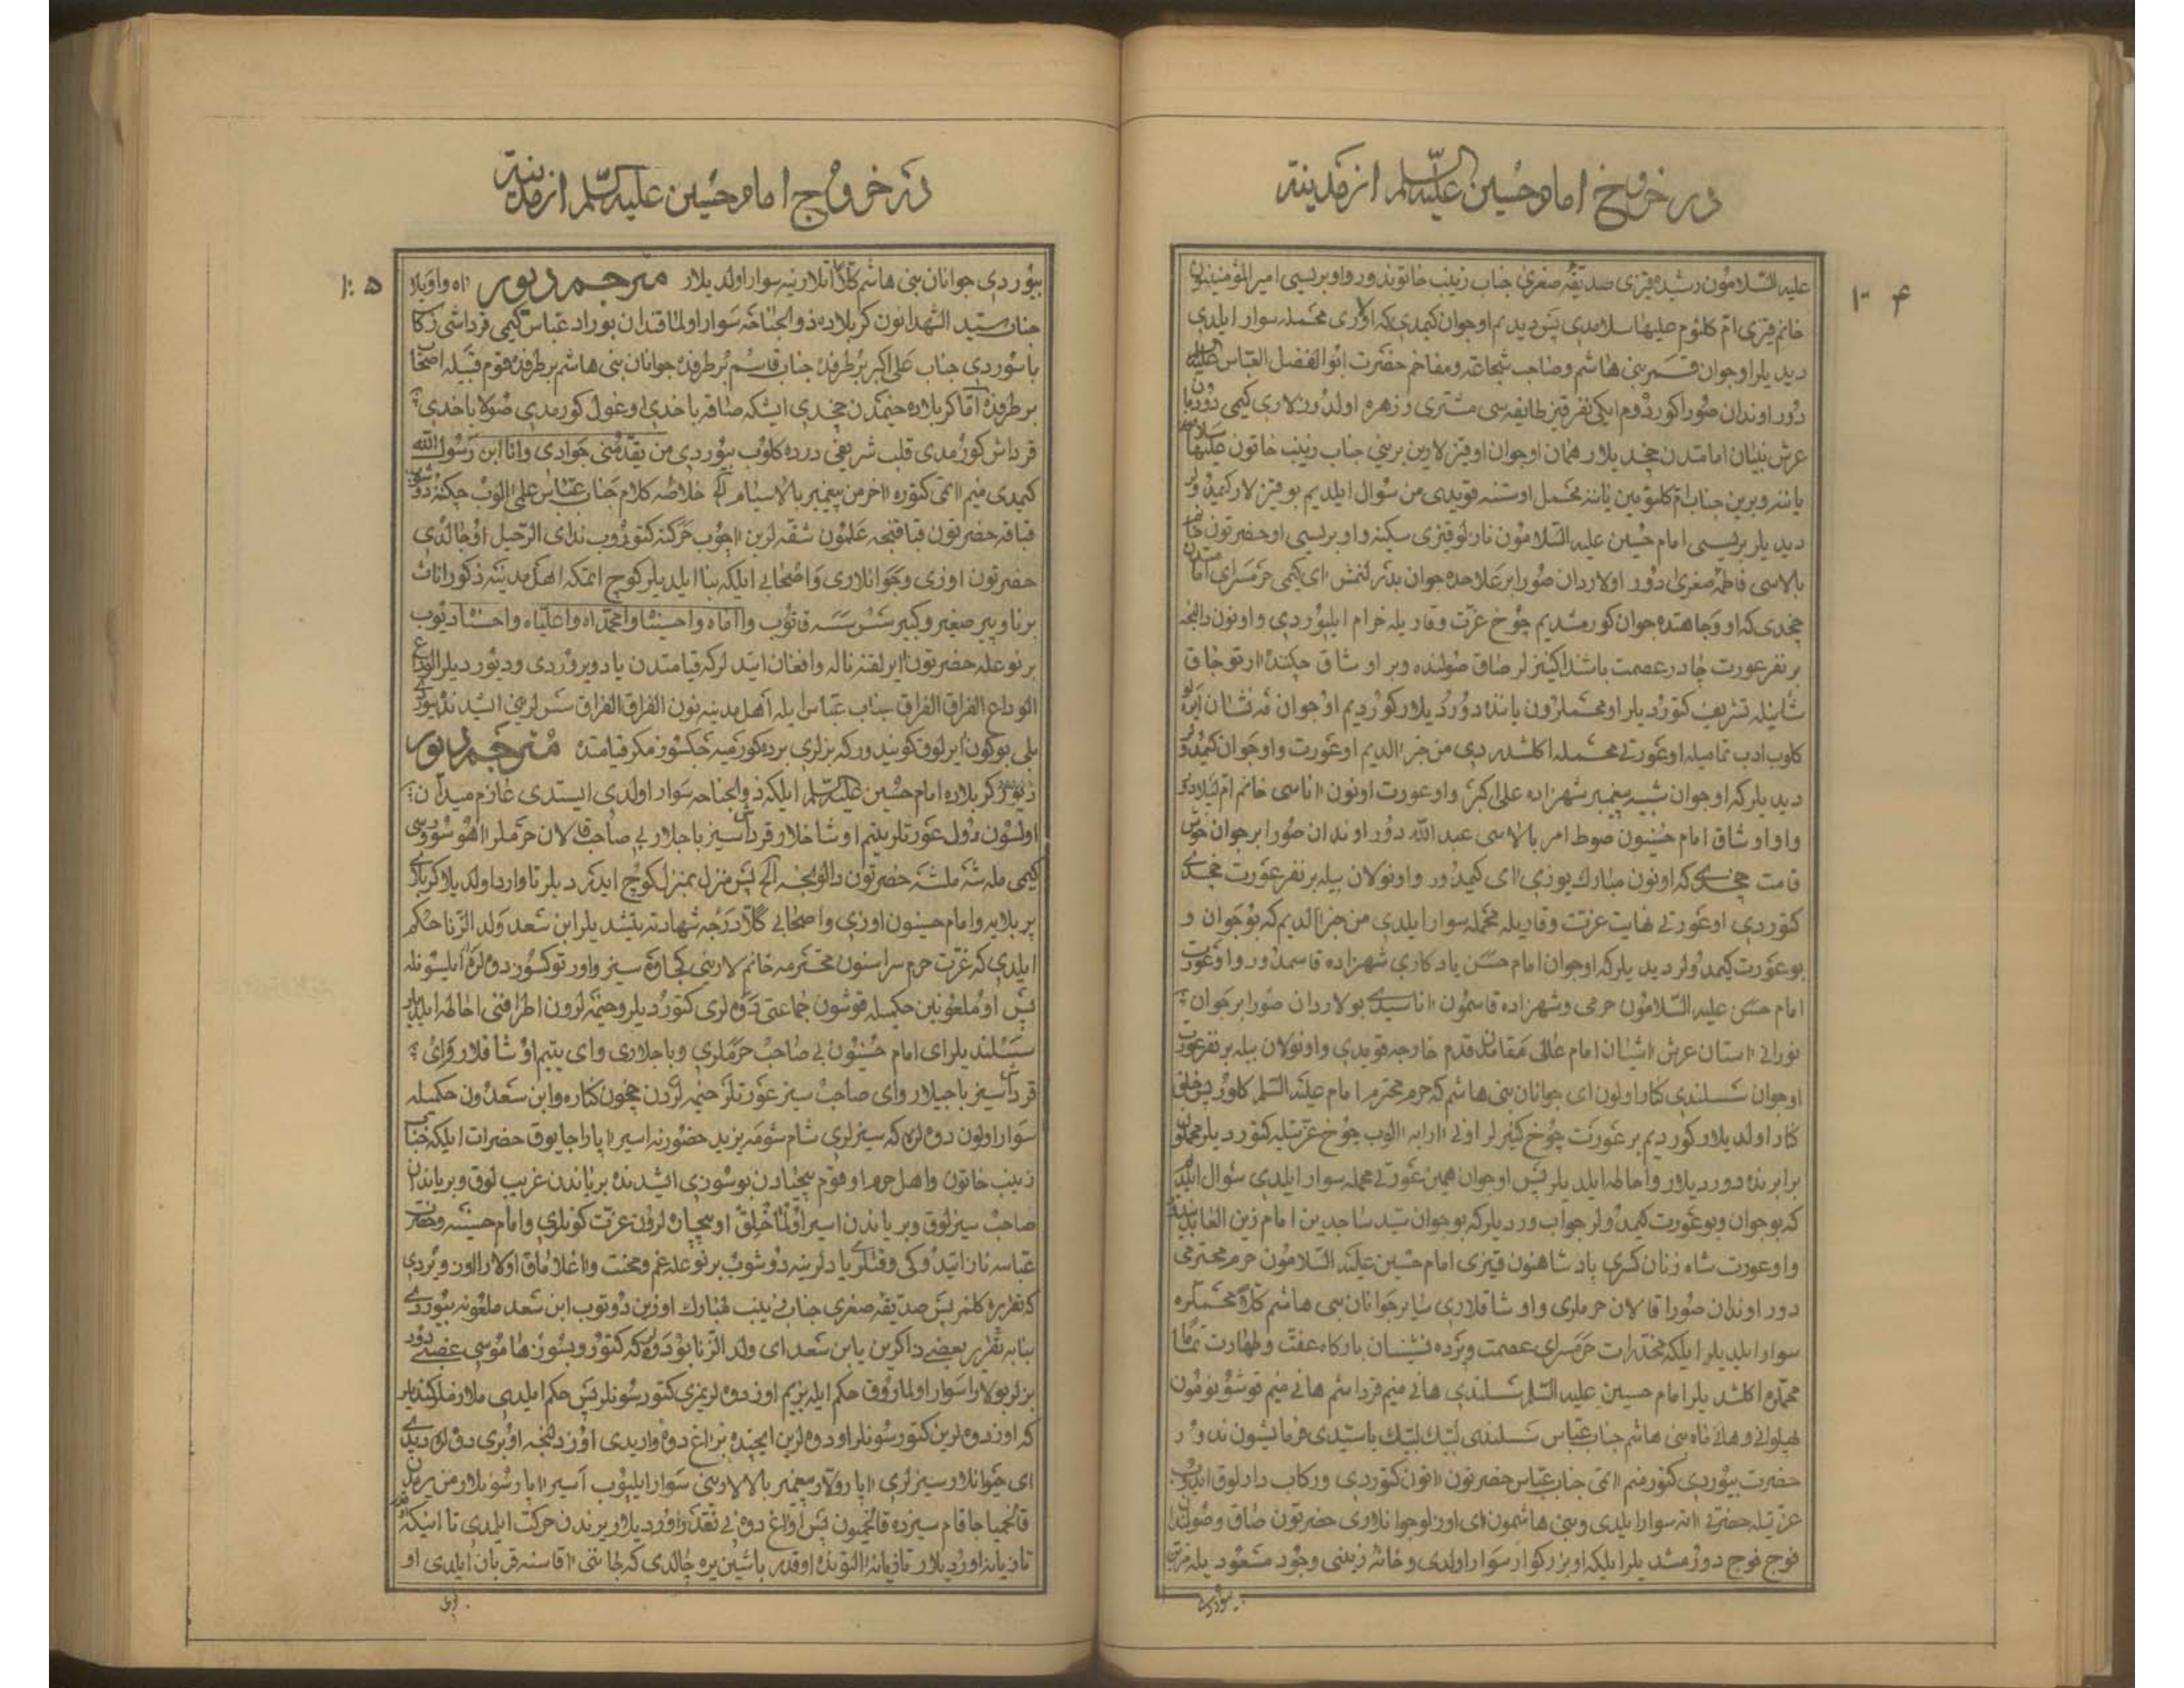 در خروج امام حسین علیه السلم از مدینه
۱۰۴
علیه السلامون رشیده قیزی صدیقه صغری جناب زینب خاتوندور واو بریسی امیرالمؤمنینون
خانم قیزی ام کلثوم علیها سلامدی پس دیدیم او جوان کیمدی که اولاری محمله سوار ایلدی
دیدیلر او جوان قمر بنی هاشم وصاحب شجاعة ومفاخر حضرت ابوالفضل العباس علیه السلم
دور اوندان صورا کوردوم ایکی نفر قیز طایفه سی مشتری و زهره اولدوزلاری کیمی دورما
عرش بنیان امامتدن چخدیلار همان اوجوان اوقیزلارین برینی جناب زینب خاتون علیها سلام
یاننه وبرین جناب ام کلثومین یاننه محمل اوستنه قویدی من سؤال ایلدیم بو قیزلار کیمدولر
دیدیلر بریسی امام حسین علیه السلامون نازلو قیزی سکینه واو بریسی اوحضرتون خانم
بالاسی فاطمه صغری دور اولاردان صورا بر علاحده جوان بدر لنمش آی کیمی حرمسرای امامتدن
چخدی که او وجاهتده جوان کورمشدیم چوخ عزت وقاریله خرام ایلیوردی واونون دالنجه
بر نفر عورت چادر عصمت باشندا کنیزلر صاق صولنده وبر اوشاق چکننده آرتوخاق
شانیله تشریف کتوردیلر او محمللرون یاننده دوردیلار کوردیم اوجوان
کلوب ادب تمامیله اوعورتی محمله اکلشدردی من خبر الدیم اوعورت واوجوان کیمدولر
دیدیلر که اوجوان شبیه پیغمبر شهزاده علی اکبر واوعورت اونون اناسی خانم ام لیلادور
واو اوشاق امام حسینون صوط امر بالاسی عبدالله دور اوندان صورا بر جوان خوش
قامت چخدی که اونون مبارک یوزی آی کیمدور واونولان بیله بر نفر عورت چخدی
کتوردی اوعورتی نهایت عزت وقاریله محمله سوار ایلدی من خبر الدیم که بوجوان و
بوعورت کیمدولر دیدیلر که اوجوان امام حسن یادکاری شهزاده قاسمدور واوعورت
امام حسن علیه السلامون حرمی وشهزاده قاسمون اناسیدی بولاردان صورا بر جوان
نورانی استان عرش اشیان امام عالی مقامدن قدم خارجه قویدی واونولان بیله بر نفر عورت
اوجوان سسلندی کنار اولون ای جوانان بنی هاشم که حرم محترم امام علیه السلم کلور پس خلق
کنار اولدیلار کوردیم بر عورت چوخ کنیزلر اونی ارایه الوب چوخ عزتیله کتوردیلر محملون
برابرنده دوردیلار واحاطه ایلدیلر پس اوجوان همین عورتی محمله سوار ایلدی سؤال ایلدیم
که بوجوان وبوعورت کیمدولر جواب وردیلر که بوجوان سید ساجدین امام زین العابدیندور
واوعورت شاه زنان کسری پادشاهنون قیزی امام حسین علیه السلامون حرم محترمی
دور اوندان صورا قالان حرملری واوشاقلاری سایر جوانان بنی هاشم کلا محمللره
سوار ایلدیلر ایلکه مخدرات حرمسرای عصمت وپرده نشینان بارکاه عفت وطهارت تماما
محملده اکلشدیلر امام حسین علیه السلم سسلندی هانی منم قرداشم هانی منم قوشونومون
پهلوانی وهانی ماه بنی هاشم جناب عباس سسلندی لبیک لبیک یا سیدی فرمایشون ندور
حضرت بیوردی کتور منم اتمی جناب عباس حضرتون اتون کتوردی ورکاب دارلوق ایدوب
عزتیله حضرتی اته سوار ایلدی وبنی هاشمون ای اوزلو جوانلاری حضرتون صاق وصولندا
فوج فوج دورمشدیلر ایلکه او بزرکوار سوار اولدی وخانه زینی وجود مسعودیله مزین
بیوردی
در خروج امام حسین علیه السلم از مدینه
۱۰۵
بیوردی جوانان بنی هاشم کلا اتلارینه سوار اولدیلار مترجم دیور اه واویلا
جناب سید الشهدانون کربلاده ذوالجناحه سوار اولماقندان بوراد عباس کیمی قرداشی رکا
باسوردی جناب علی اکبر بر طرفده جناب قاسم بر طرفده جوانان بنی هاشم بر طرفده قوم قبیله اصحاب
بر طرفده اما کربلاده خیمدن چخدی ایسکه صاقه باخدی اوغول کورمدی صولا باخدی
قرداش کورمدی قلب شریفی درده کلوب بیوردی من یقدمنی جوادی وانا ابن رسول الله
کیمدی منیم اتمی کتوره اخر من پیغمبر بالاسیام الخ خلاصه کلام جناب عباس علمی الوب چکننه دوشوب
قباقه حضرتون قباقنجه علمون شقه لرین اچوب حرکته کتوروب ندای الرحیل اوجالدی
حضرتون اوزی وجوانلاری واصحابی ایلکه بنا ایلدیلر کوچ ایتمکه اهل مدینه ذکور اناث
برنا وپیر صغیر وکبیر سس سسه قاتوب وااماه واحسیناه وامحمداه واعلیاه واحسناه دیوب
بر نوعله حضرتون ایرلقنه ناله وافغان ایتدلر که قیامتدن یاد ویروردی ودیوردیلر الوداع
الوداع الفراق الفراق جناب عباس ایله اهل مدینه نون الفراق الفراق سسلرینی ایشیدنده بیوردی
بلی بوکون ایرلوق کونیدور که بزلری برده کورمیه جکسوز مکر قیامتده مترجم دیور
کربلاده امام حسین علیه السلم ایلکه ذوالجناحه سوار اولدی ایستدی عازم میدان
اولسون دول عورتلر یتیم اوشاخلار قرداشسیز باجلار بی صاحب قالان حرملر اهو سوروسی
کیمی مله شه ملشه حضرتون دالونجه الخ پس منزل بمنزل کوچ ایدردیلر تا وارد اولدیلا کربلای
پر بلایه وامام حسینون اوزی واصحابی کلا درجه شهادته یتشدیلر ابن سعد ولد الزنا حکم
ایلدی که عزت حرم سراسنون محترمه خانم لارینی کجاوه سیز واورتوکسوز دوه لره
پس اوملعونین حکمیله قوشون جماعتی دوه لری کتوردیلر وخیمه لرون اطرافنی احاطه ایلدیلر
سسلندیلر ای امام حسینون بی صاحب حرملری وباجلاری وای یتیم اوشاقلار وای
قرداشسیز باجیلار وای صاحب سیز عورتلر خیمه لردن چخون کناره وابن سعدون حکمیله
سوار اولون دوه لره که سیزلری شام شومه یزید حضورنه اسیر اپاراجایوق حضرات ایلکه جناب
زینب خاتون واهل حرم اوقوم بیحیادن بوسوزی ایشدنده بریاندن غریب لوق وبریاندان
صاحب سیزلوق وبریاندن اسیر اولماخلق اوبیچاره لرون عزت کونلری وامام حسینه وحضرت
عباسه ناز ایتدوکی وقتلری یادلرینه دوشوب بر نوعله غم ومحنت واغلاماق اولارا اوز ویردی
که تقریره کلمز پس صدیقه صغری جناب زینب مبارک اوزین دوتوب ابن سعد ملعونه بیوردی
بنا به تقریر بعضی ذاکرین یابن سعد ای ولد الزنا بو دوه لر که کتورو بسوز هاموسی غصبی دور
بزلر بولارا سوار اولماروق حکم ایله بزیم اوز دوه لریمزی کتورسونلر پس حکم ایلدی ملازملر کتدیلر
که اوز دوه لرین کتورسونلر اودوه لرین ایچنده بر اغ دوه واریدی اوز دلنجه اوبری دوه لره دیدی
ای جوانلار سیزلری اپارولار پیغمبر بالالارینی سوار ایلیوب اسیر اپارسونلار من یرمدن
قالخمیاجاقام سیزده قالخمیون پس اواغ دوه نی نقدر اوردیلار یرندن حرکت ایلمدی تا اینکه اوقدر
تازیانه اوردیلار تازیانه التونده اوقدر باشین یره چالدی که جانی اقاسنه قربان ایلدی او